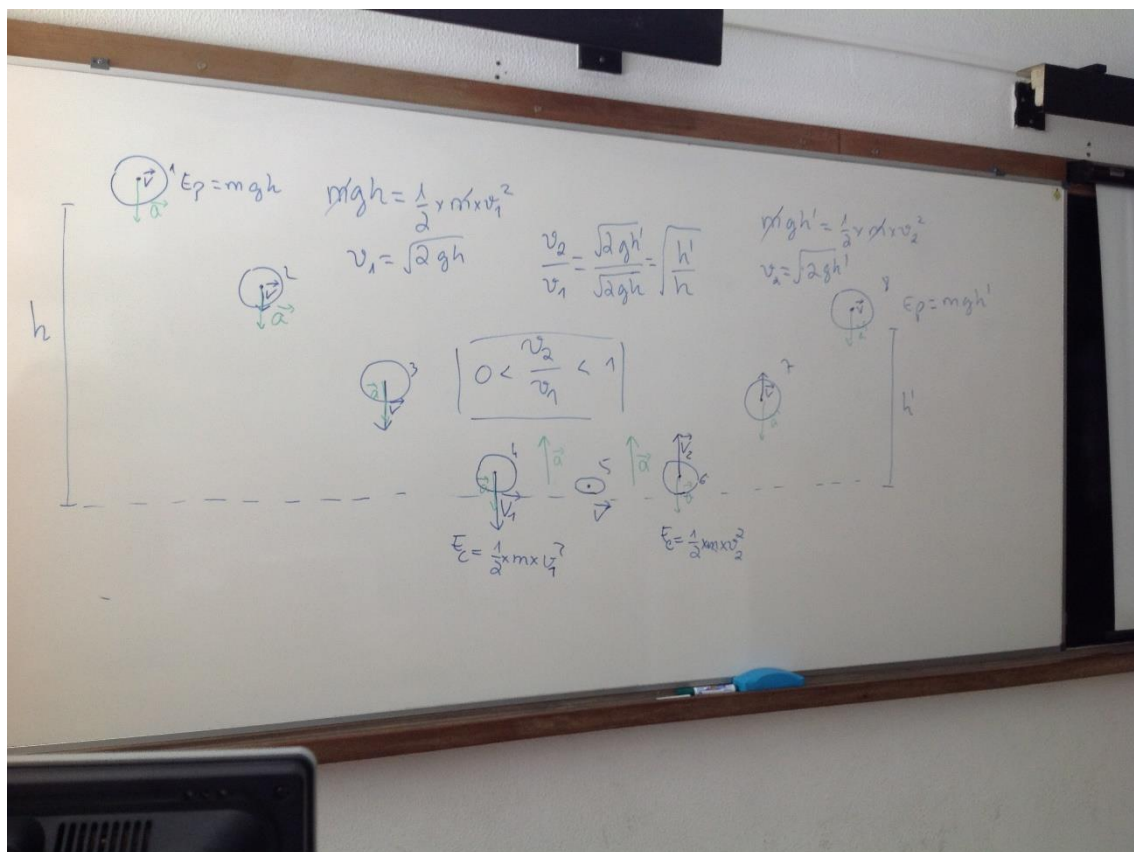 1 Ep = mgh
v⃗
a⃗
mgh = 1/2 × m × v₁²
v₁ = √2gh
v₂/v₁ = √2gh'/√2gh = √h'/h
mgh' = 1/2 × m × v₂²
v₂ = √2gh'
2
v⃗
a⃗
8 Ep = mgh'
v⃗
a⃗
h
3
a⃗
v⃗
0 < v₂/v₁ < 1
7
v⃗
a⃗
h'
4
a⃗
v⃗₁
a⃗
5
v⃗
a⃗
v⃗₂
6
a⃗
Ec = 1/2 × m × v₁²
Ec = 1/2 × m × v₂²